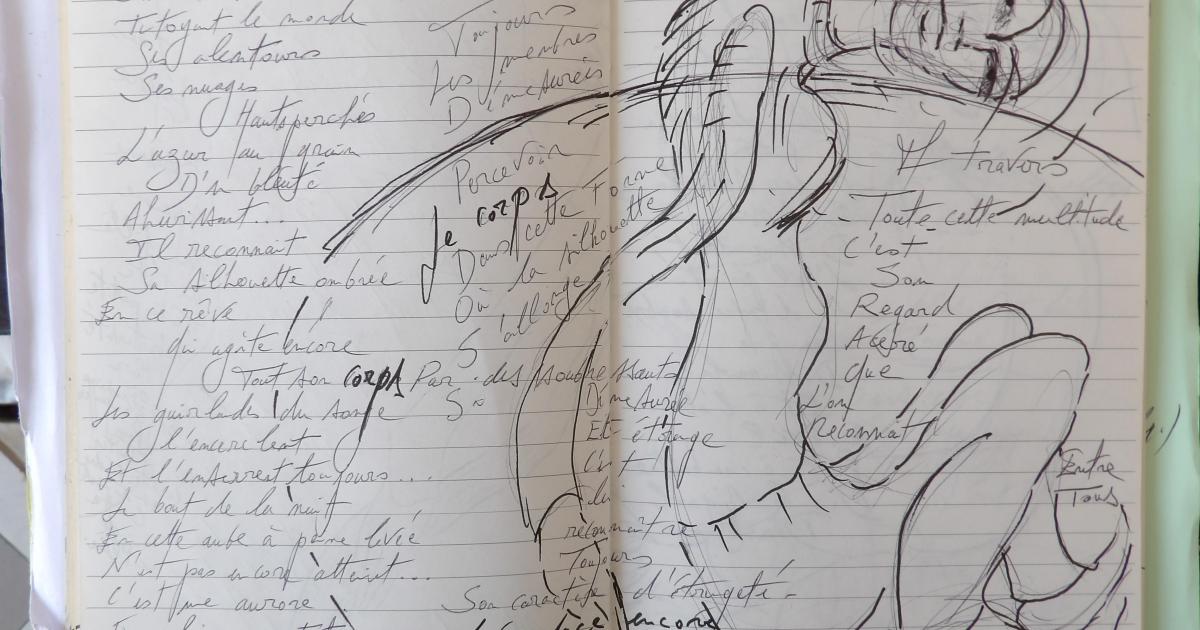 Tutoyant le monde
Ses alentours
Ses nuages
Hauts perchés
L'azur au grain
D'un bleuté
Ahurissant...
Il reconnait
Sa silhouette ombrée
En ce rêve
qui agite encore
Tout son corps Par des soubresauts
Les guirlandes du songe
l'encerclent
Et l'enserrent toujours...
Le bout de la nuit
En cette aube à peine livée
N'est pas encore atteint...
C'est une aurore
Toujours
Les membres
Démesurés
Percevoir
Le corps
Dans cette forme
Où la silhouette
S'allonge
Si
Démesurée
Et étrange
C'est
lui
reconnaître
Toujours
Son caractère d'étrangeté -
encore
A travers
- Toute cette multitude
C'est
Son
Regard
Acéré
que
L'on
Reconnaît
Entre
Tous